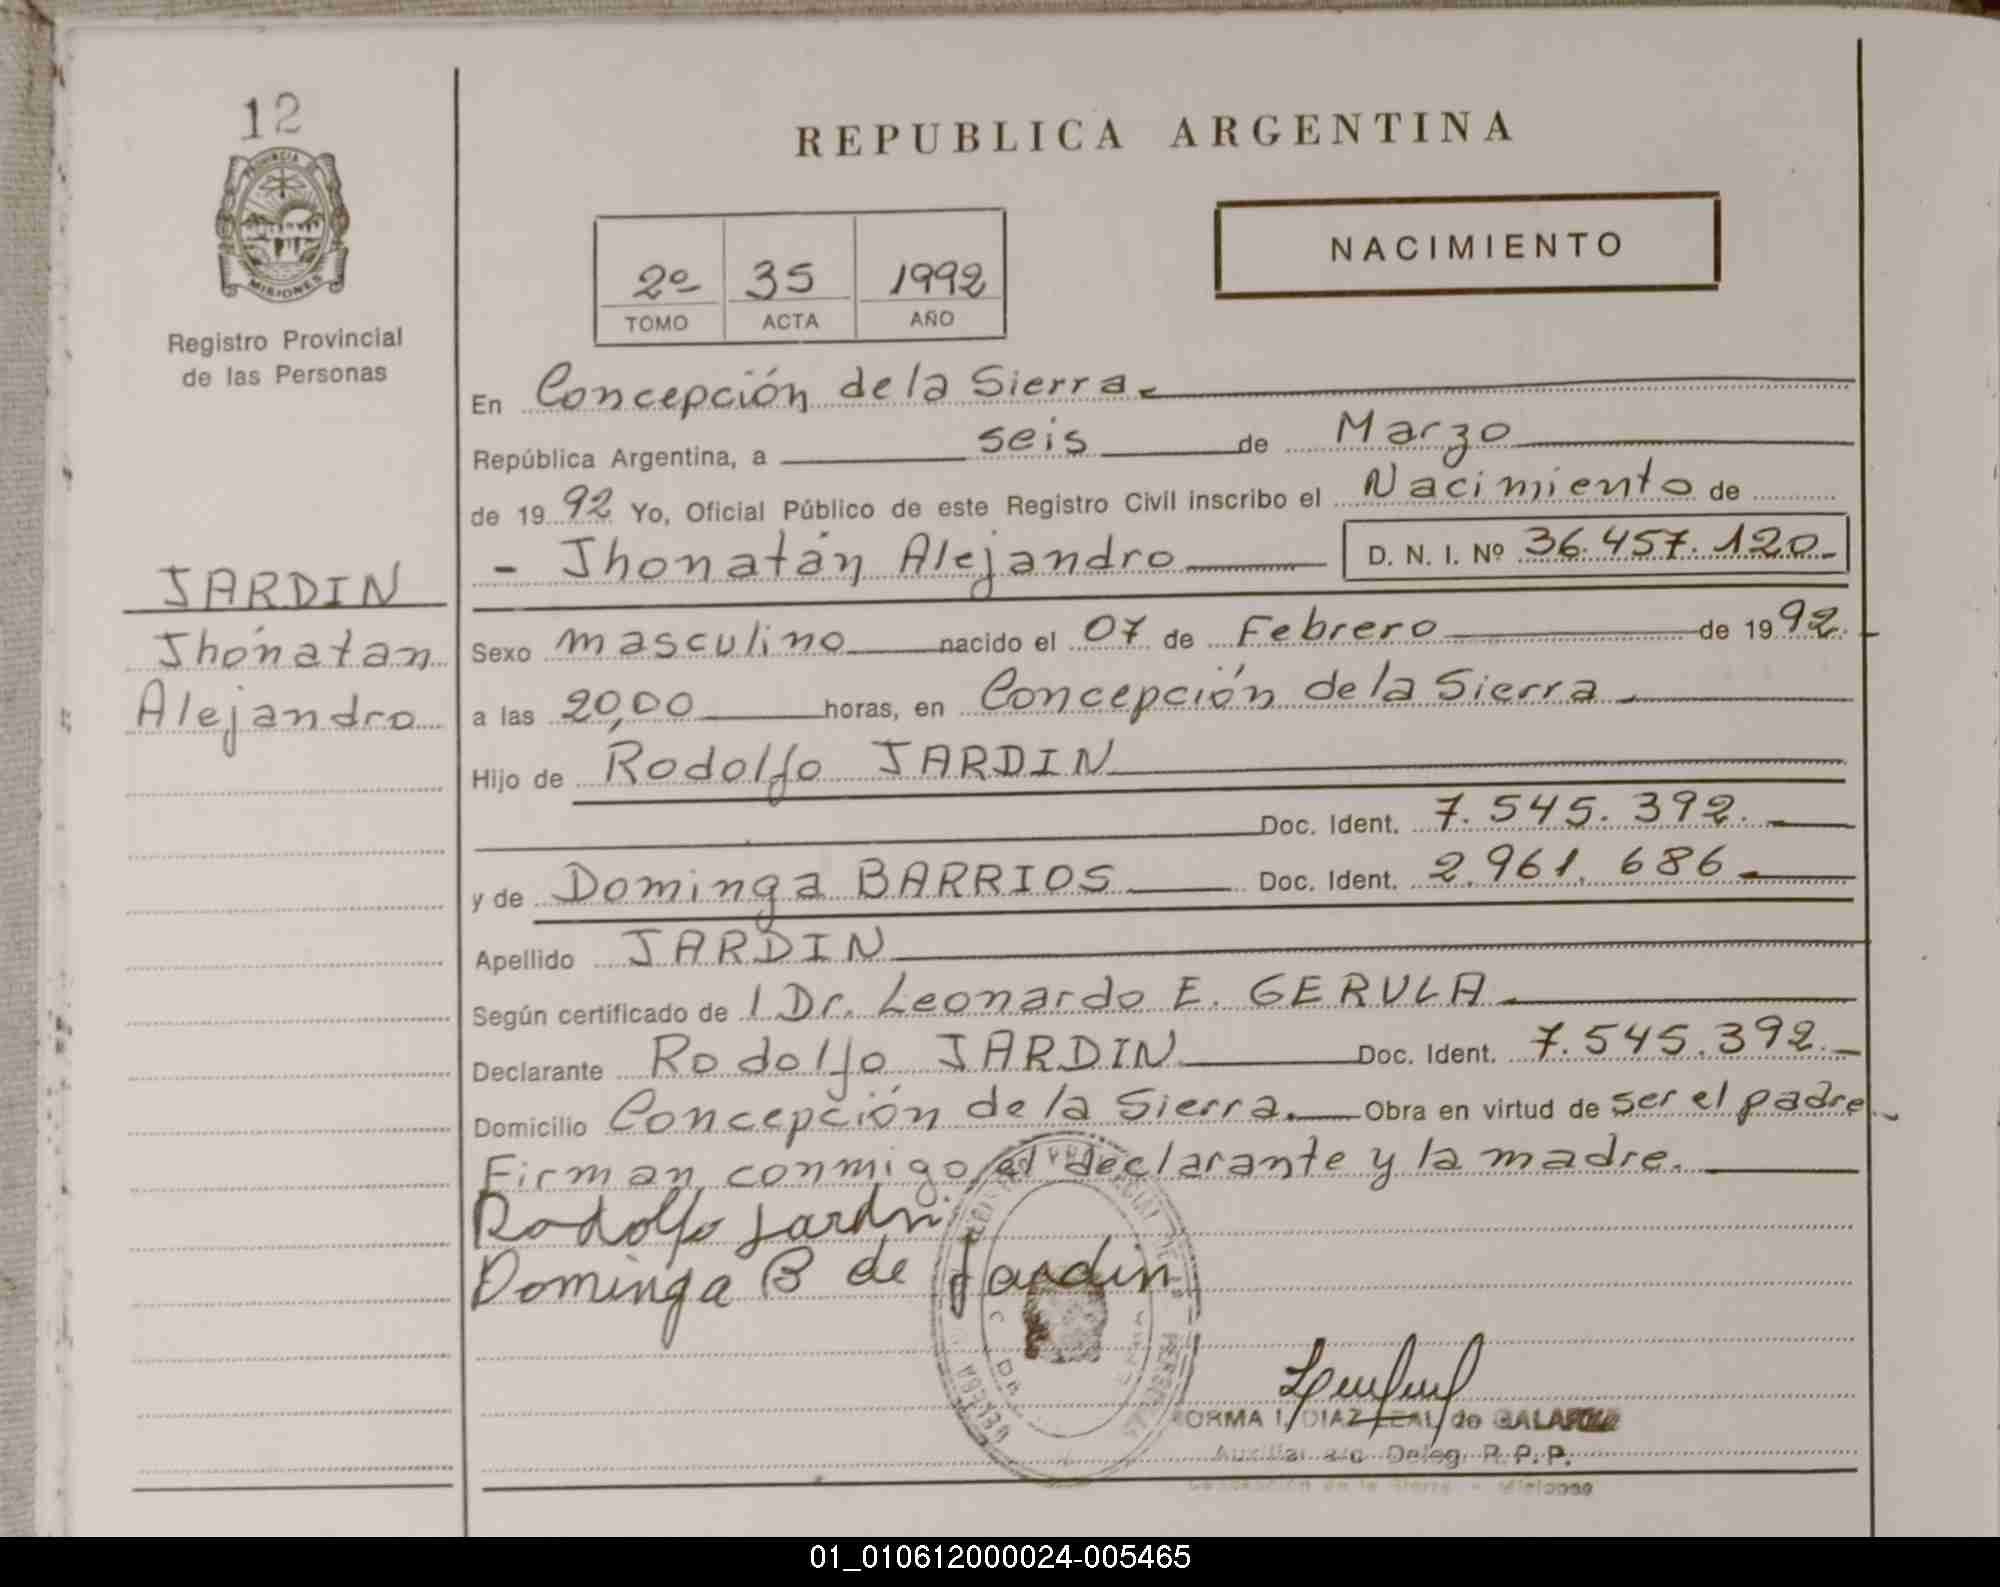 12
PROVINCIA
MISIONES
Registro Provincial
de las Personas
JARDIN
Jhónatan
Alejandro
REPUBLICA ARGENTINA
2º 35 1992
TOMO ACTA AÑO
NACIMIENTO
En Concepción de la Sierra.
República Argentina, a seis de Marzo
de 1992 Yo, Oficial Público de este Registro Civil inscribo el Nacimiento de
- Jhonatán Alejandro D. N. I. Nº 36.457.120-
Sexo masculino nacido el 07 de Febrero de 1992.
a las 20,00 horas, en Concepción de la Sierra.
Hijo de Rodolfo JARDIN
Doc. Ident. 7.545.392.
y de Dominga BARRIOS Doc. Ident. 2.961.686
Apellido JARDIN
Según certificado de l Dr. Leonardo E. GERULA
Declarante Rodolfo JARDIN Doc. Ident. 7.545.392.
Domicilio Concepción de la Sierra. Obra en virtud de ser el padre
Firman conmigo el declarante y la madre.
Rodolfo Jardin
Dominga B de Jardin
NORMA I. DIAZ LEAL de
Auxiliar a/c Deleg. R. P. P.
Concepción de la Sierra - Misiones
01_010612000024-005465